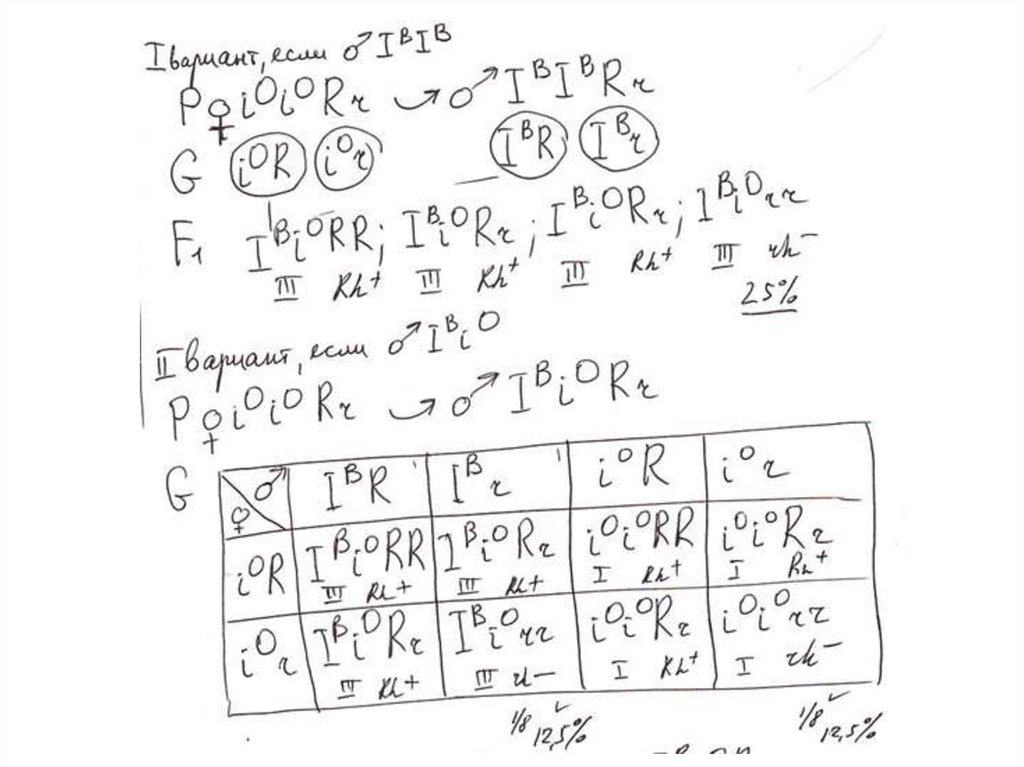 I вариант, если ♂ IᴮIᴮ
P ♀ iᴼiᴼRr → ♂ IᴮIᴮRr
G iᴼR iᴼr IᴮR Iᴮr
F₁ IᴮiᴼRR; IᴮiᴼRr; IᴮiᴼRr; Iᴮiᴼrr
III Rh⁺ III Rh⁺ III Rh⁺ III rh⁻
25%
II вариант, если ♂ Iᴮiᴼ
P ♀ iᴼiᴼ Rr → ♂ IᴮiᴼRr
G ♀ ♂ IᴮR Iᴮr iᴼR iᴼr
iᴼR IᴮiᴼRR IᴮiᴼRr iᴼiᴼRR iᴼiᴼRr
III Rh⁺ III Rh⁺ I Rh⁺ I Rh⁺
iᴼr IᴮiᴼRr Iᴮiᴼrr iᴼiᴼRr iᴼiᴼrr
III Rh⁺ III rh⁻ I Rh⁺ I rh⁻
1/8 12,5% 1/8 12,5%